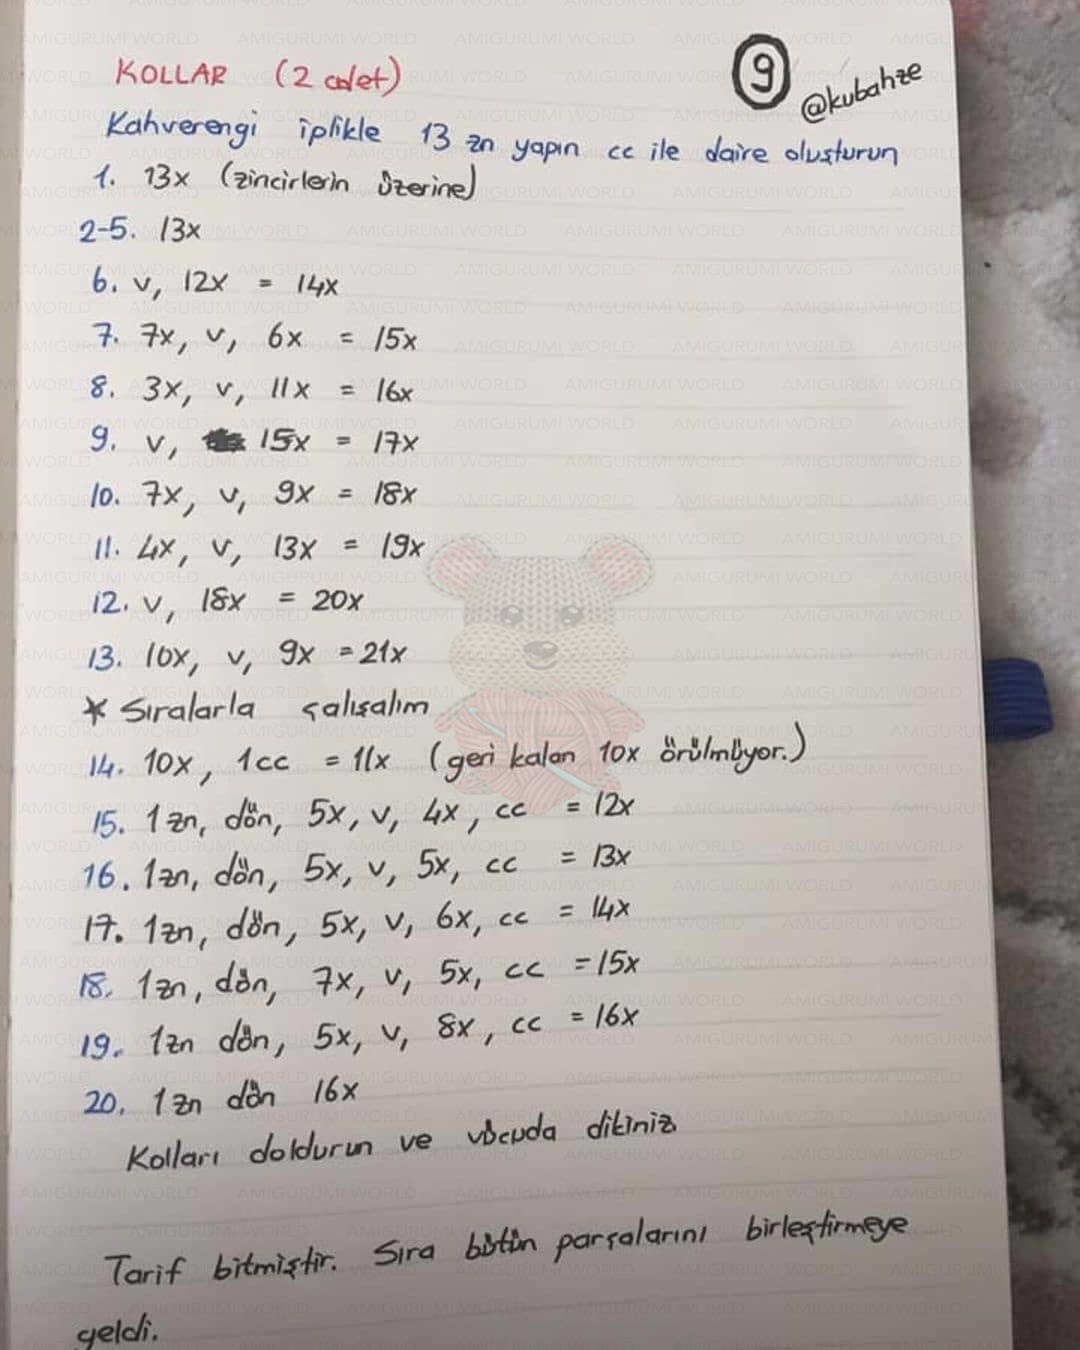 KOLLAR (2 adet)
9
@kubahze
Kahverengi iplikle 13 zn yapın cc ile daire oluşturun
1. 13x (zincirlerin üzerine)
2-5. 13x
6. v, 12x = 14x
7. 7x, v, 6x = 15x
8. 3x, v, 11x = 16x
9. v, 15x = 17x
10. 7x, v, 9x = 18x
11. 4x, v, 13x = 19x
12. v, 18x = 20x
13. 10x, v, 9x = 21x
* Sıralarla çalışalım
14. 10x, 1cc = 11x (geri kalan 10x örülmüyor.)
15. 1zn, dön, 5x, v, 4x, cc = 12x
16. 1zn, dön, 5x, v, 5x, cc = 13x
17. 1zn, dön, 5x, v, 6x, cc = 14x
18. 1zn, dön, 7x, v, 5x, cc = 15x
19. 1zn dön, 5x, v, 8x, cc = 16x
20. 1zn dön 16x
Kolları doldurun ve vücuda dikiniz
Tarif bitmiştir. Sıra bütün parçalarını birleştirmeye
geldi.
AMIGURUMI WORLD